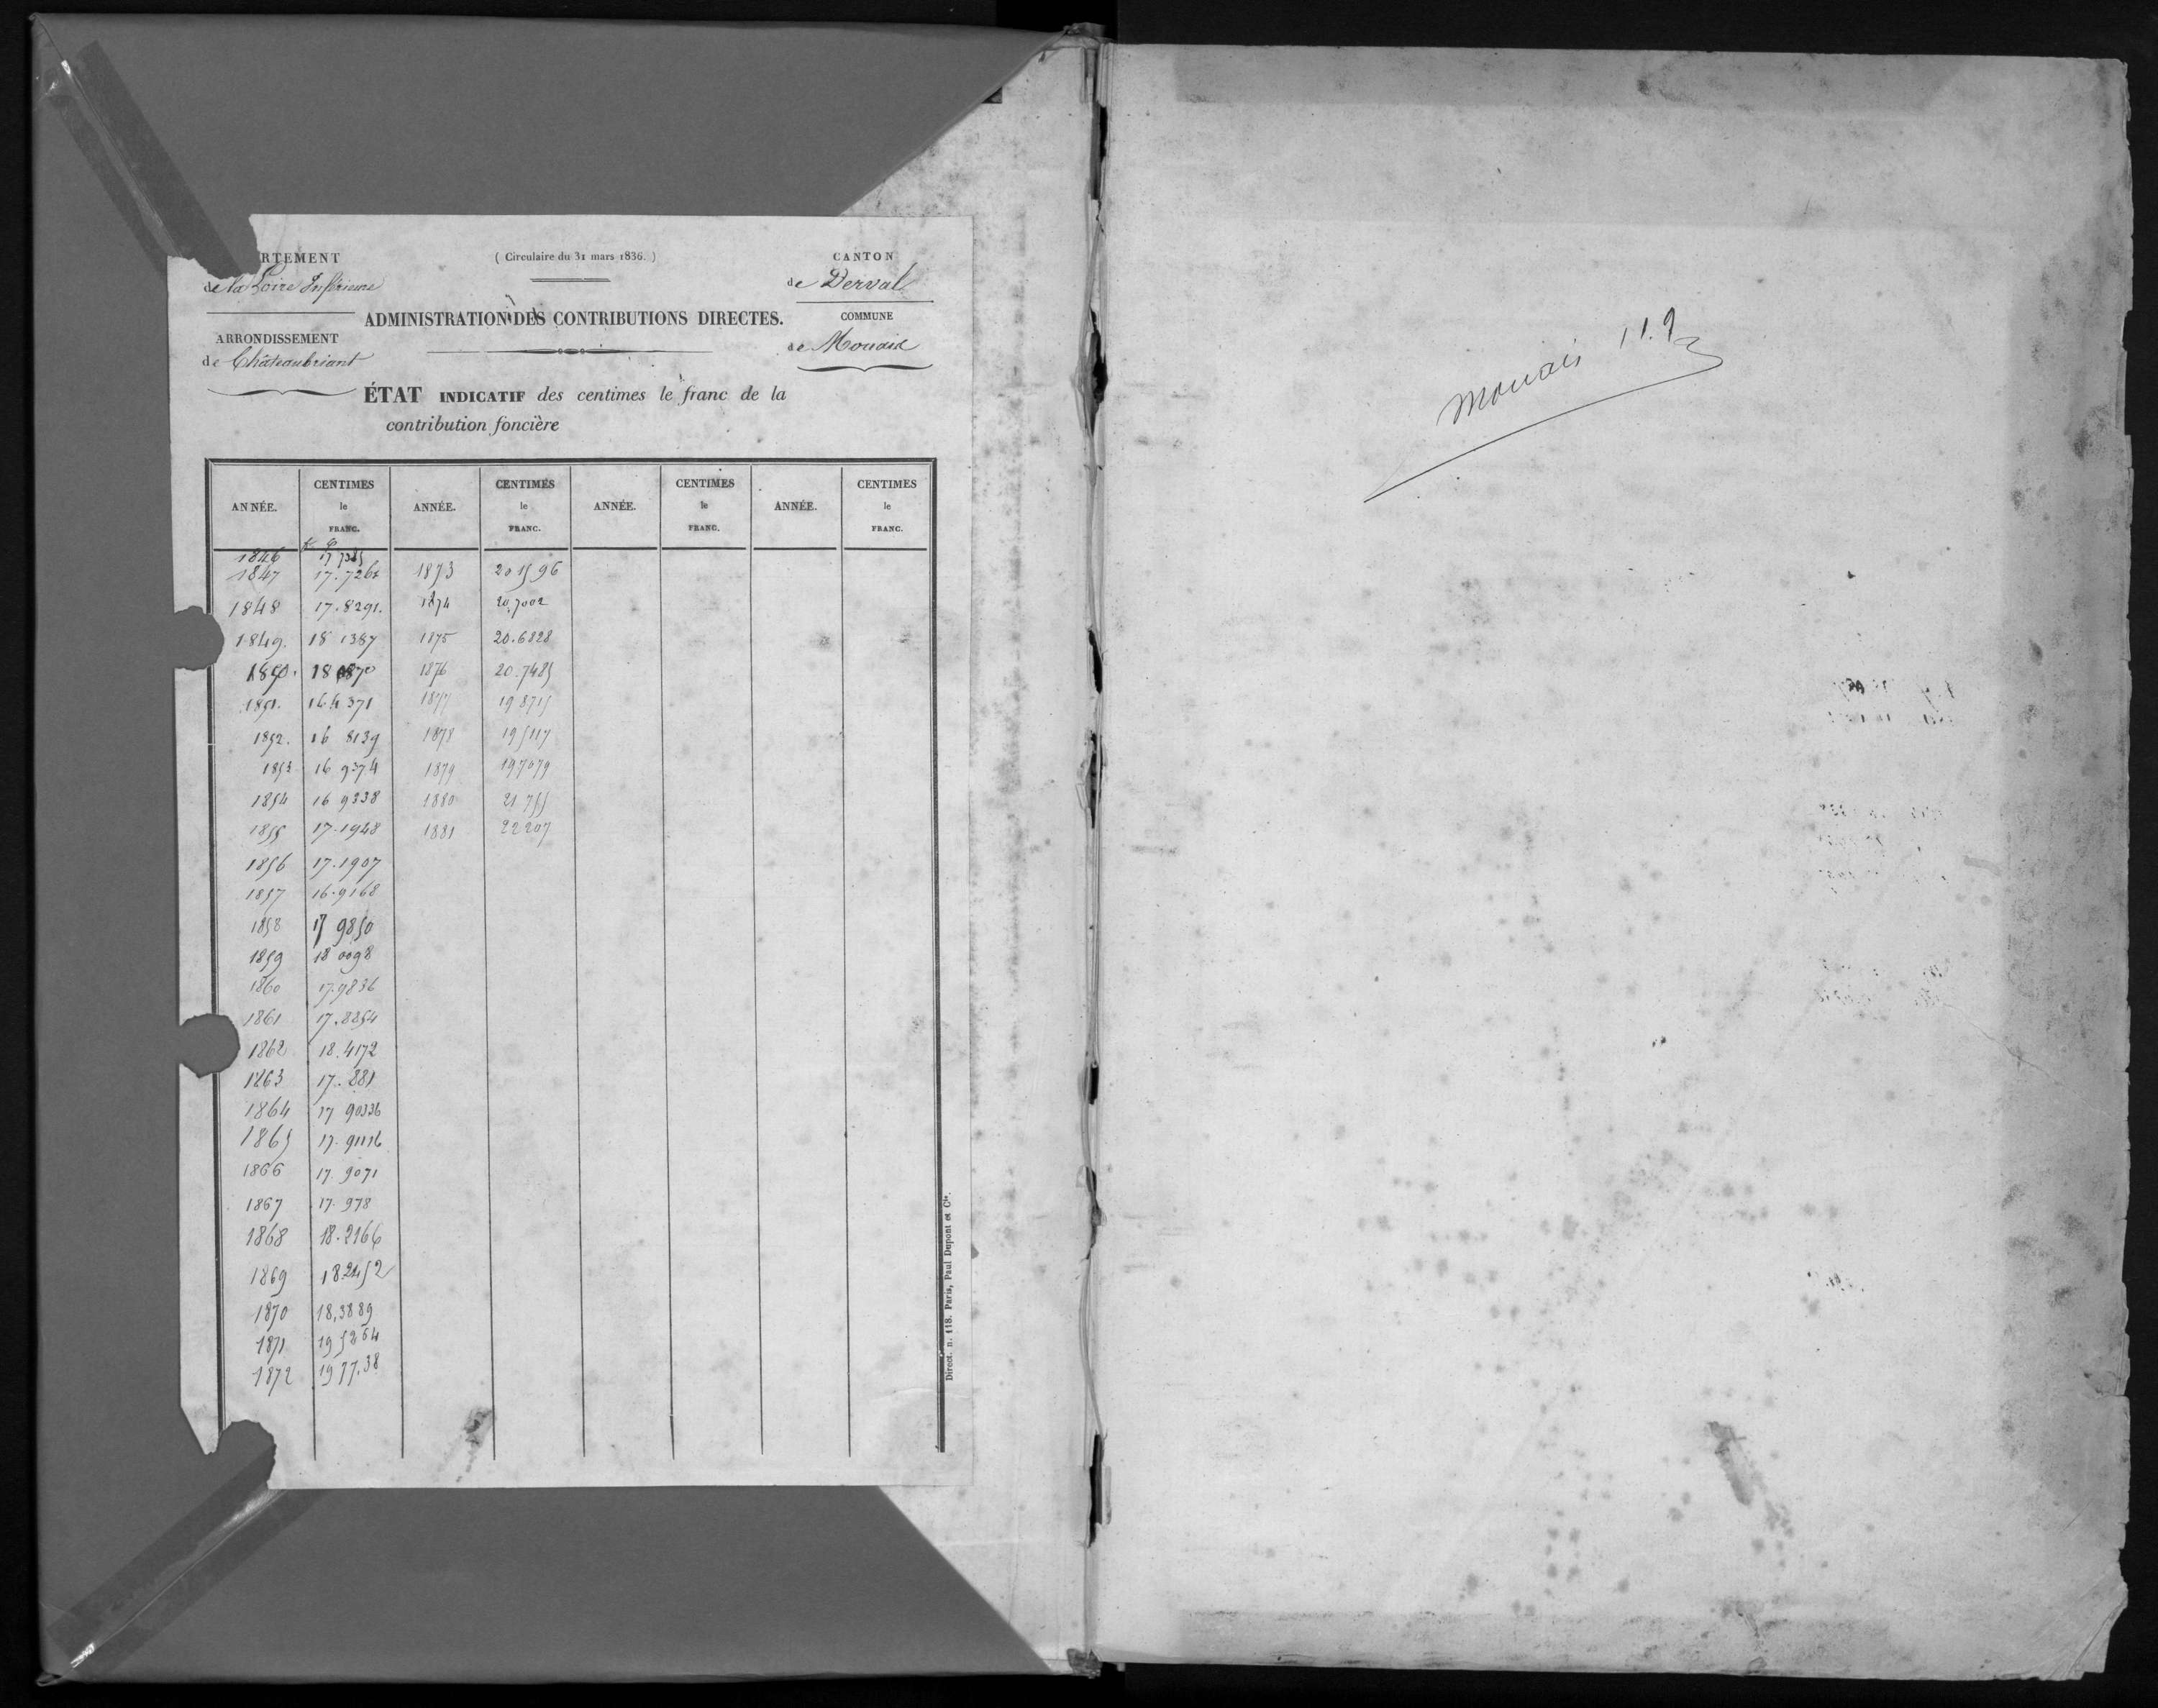 RTEMENT
de la Loire Inférieure
ARRONDISSEMENT
de Châteaubriant
( Circulaire du 31 mars 1836. )
ADMINISTRATION DES CONTRIBUTIONS DIRECTES.
CANTON
de Derval
COMMUNE
de Mouais
ÉTAT INDICATIF des centimes le franc de la
contribution foncière
ANNÉE. CENTIMES le FRANC. ANNÉE. CENTIMES le FRANC. ANNÉE. CENTIMES le FRANC. ANNÉE. CENTIMES le FRANC.
1846
1847 1873 20 1596
1848 17.8291. 1874 20,7002
1849. 18 1387 1875 20.6828
1850. 1876 20.7485
1851. 16 4371 1877 19 8715
1852. 16 8139 1878 19 5117
1853 16 9374 1879 19 7079
1854 16 9338 1880 21 755
1855 17.1948 1881 22 207
1856 17.1907
1857 16.9168
1858 17 9850
1859 18 0098
1860 17.9836
1861 17.8854
1862 18.4172
1863 17.881
1864 17 90336
1865
1866 17.9071
1867 17.978
1868 18.2166
1869 18 2452
1870 18,3889
1871 19 5264
1872
Direct. n. 118. Paris, Paul Dupont et Cie.
Mouais 119